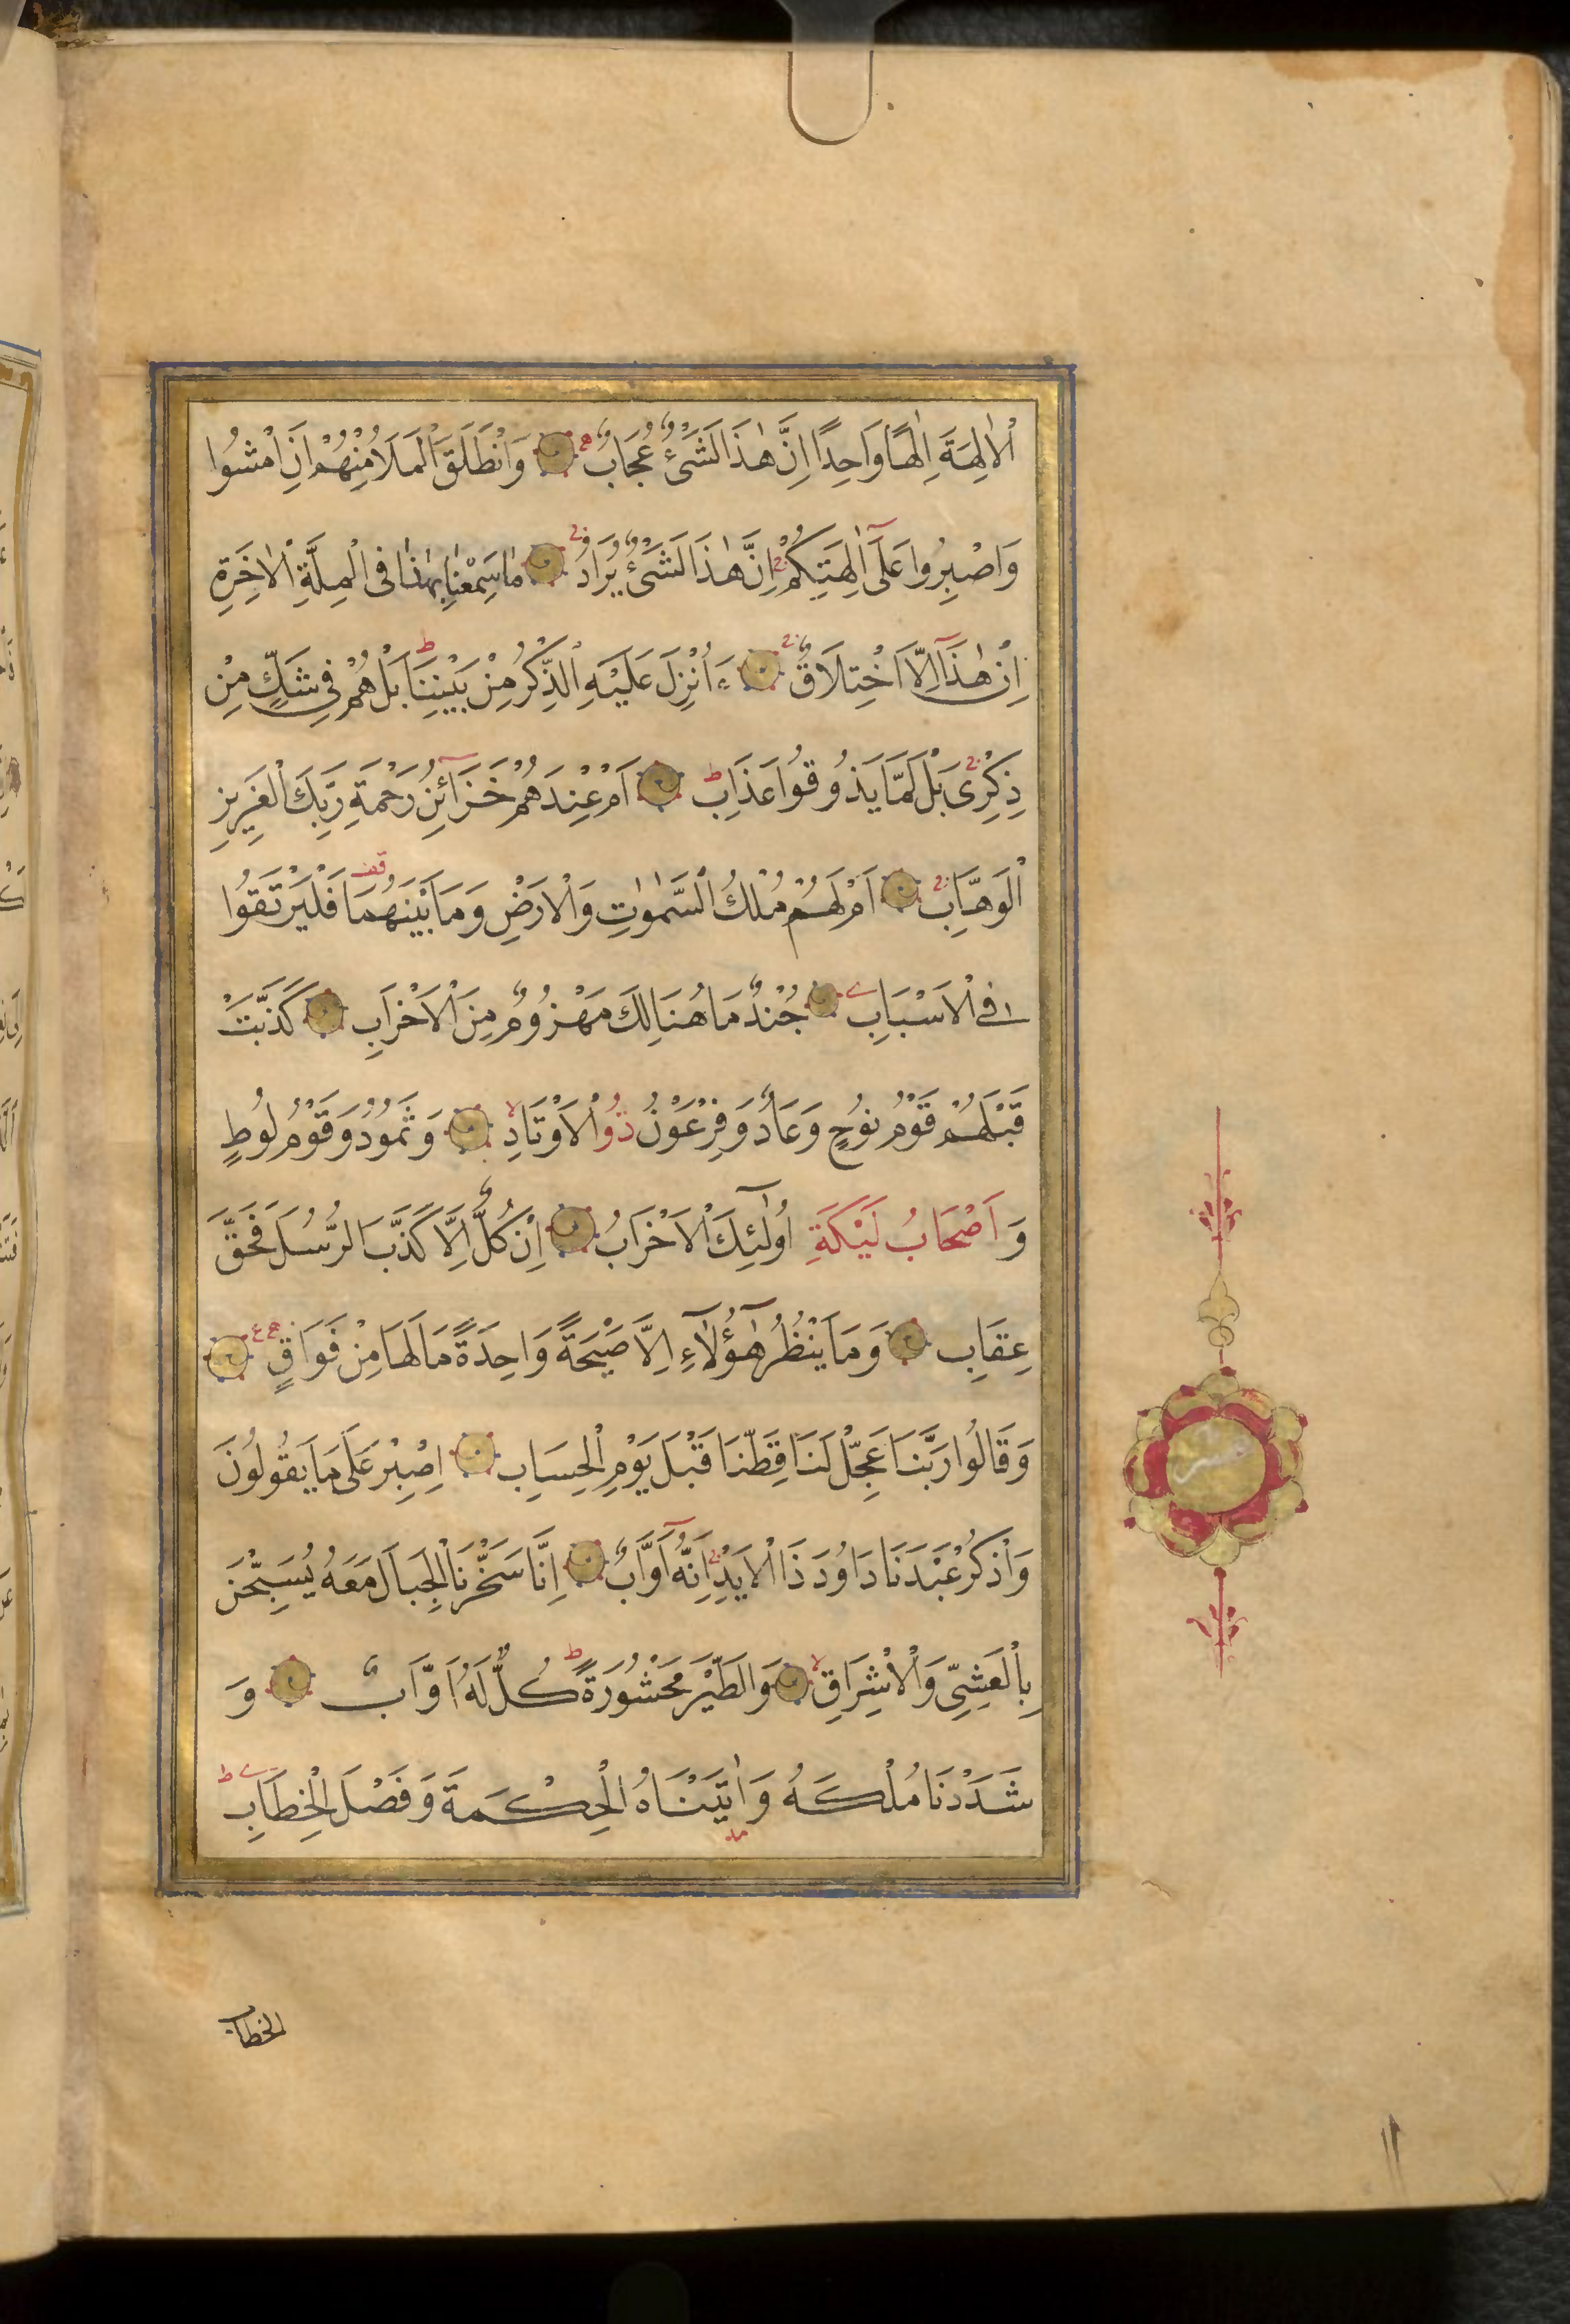 اْلاٰلِهَةَ اِلٰهًا وَاحِدًا اِنَّ هٰذَا لَشَىْءٌ عُجَابٌ وَانْطَلَقَ الْمَلَاُ مِنْهُمْ اَنِ امْشُوا
وَاصْبِرُوا عَلٰٓى اٰلِهَتِكُمْ اِنَّ هٰذَا لَشَىْءٌ يُرَادُ مَا سَمِعْنَا بِهٰذَا فِى الْمِلَّةِ الْاٰخِرَةِ
اِنْ هٰذَآ اِلَّا اخْتِلَاقٌ ءَاُنْزِلَ عَلَيْهِ الذِّكْرُ مِنْ بَيْنِنَا بَلْ هُمْ فِى شَكٍّ مِنْ
ذِكْرِى بَلْ لَمَّا يَذُوقُوا عَذَابِ اَمْ عِنْدَهُمْ خَزَآئِنُ رَحْمَةِ رَبِّكَ الْعَزِيزِ
الْوَهَّابِ اَمْ لَهُمْ مُلْكُ السَّمٰوٰتِ وَالْاَرْضِ وَمَا بَيْنَهُمَا فَلْيَرْتَقُوا
فِى الْاَسْبَابِ جُنْدٌ مَا هُنَالِكَ مَهْزُومٌ مِنَ الْاَحْزَابِ كَذَّبَتْ
قَبْلَهُمْ قَوْمُ نُوحٍ وَعَادٌ وَفِرْعَوْنُ ذُوالْاَوْتَادِ وَثَمُودُ وَقَوْمُ لُوطٍ
وَ اَصْحَابُ لَيْكَةِ اُولٰٓئِكَ الْاَحْزَابُ اِنْ كُلٌّ اِلَّا كَذَّبَ الرُّسُلَ فَحَقَّ
عِقَابِ وَمَا يَنْظُرُ هٰٓؤُلَآءِ اِلَّا صَيْحَةً وَاحِدَةً مَا لَهَا مِنْ فَوَاقٍ
وَقَالُوا رَبَّنَا عَجِّلْ لَنَا قِطَّنَا قَبْلَ يَوْمِ الْحِسَابِ اِصْبِرْ عَلٰى مَا يَقُولُونَ
وَاذْكُرْ عَبْدَنَا دَاوُدَ ذَا الْاَيْدِ اِنَّهُٓ اَوَّابٌ اِنَّا سَخَّرْنَا الْجِبَالَ مَعَهُ يُسَبِّحْنَ
بِالْعَشِىِّ وَالْاِشْرَاقِ وَالطَّيْرَ مَحْشُورَةً كُلٌّ لَهُ اَوَّابٌ وَ
شَدَدْنَا مُلْكَهُ وَاٰتَيْنَاهُ الْحِكْمَةَ وَفَصْلَ الْخِطَابِ
الخطاب